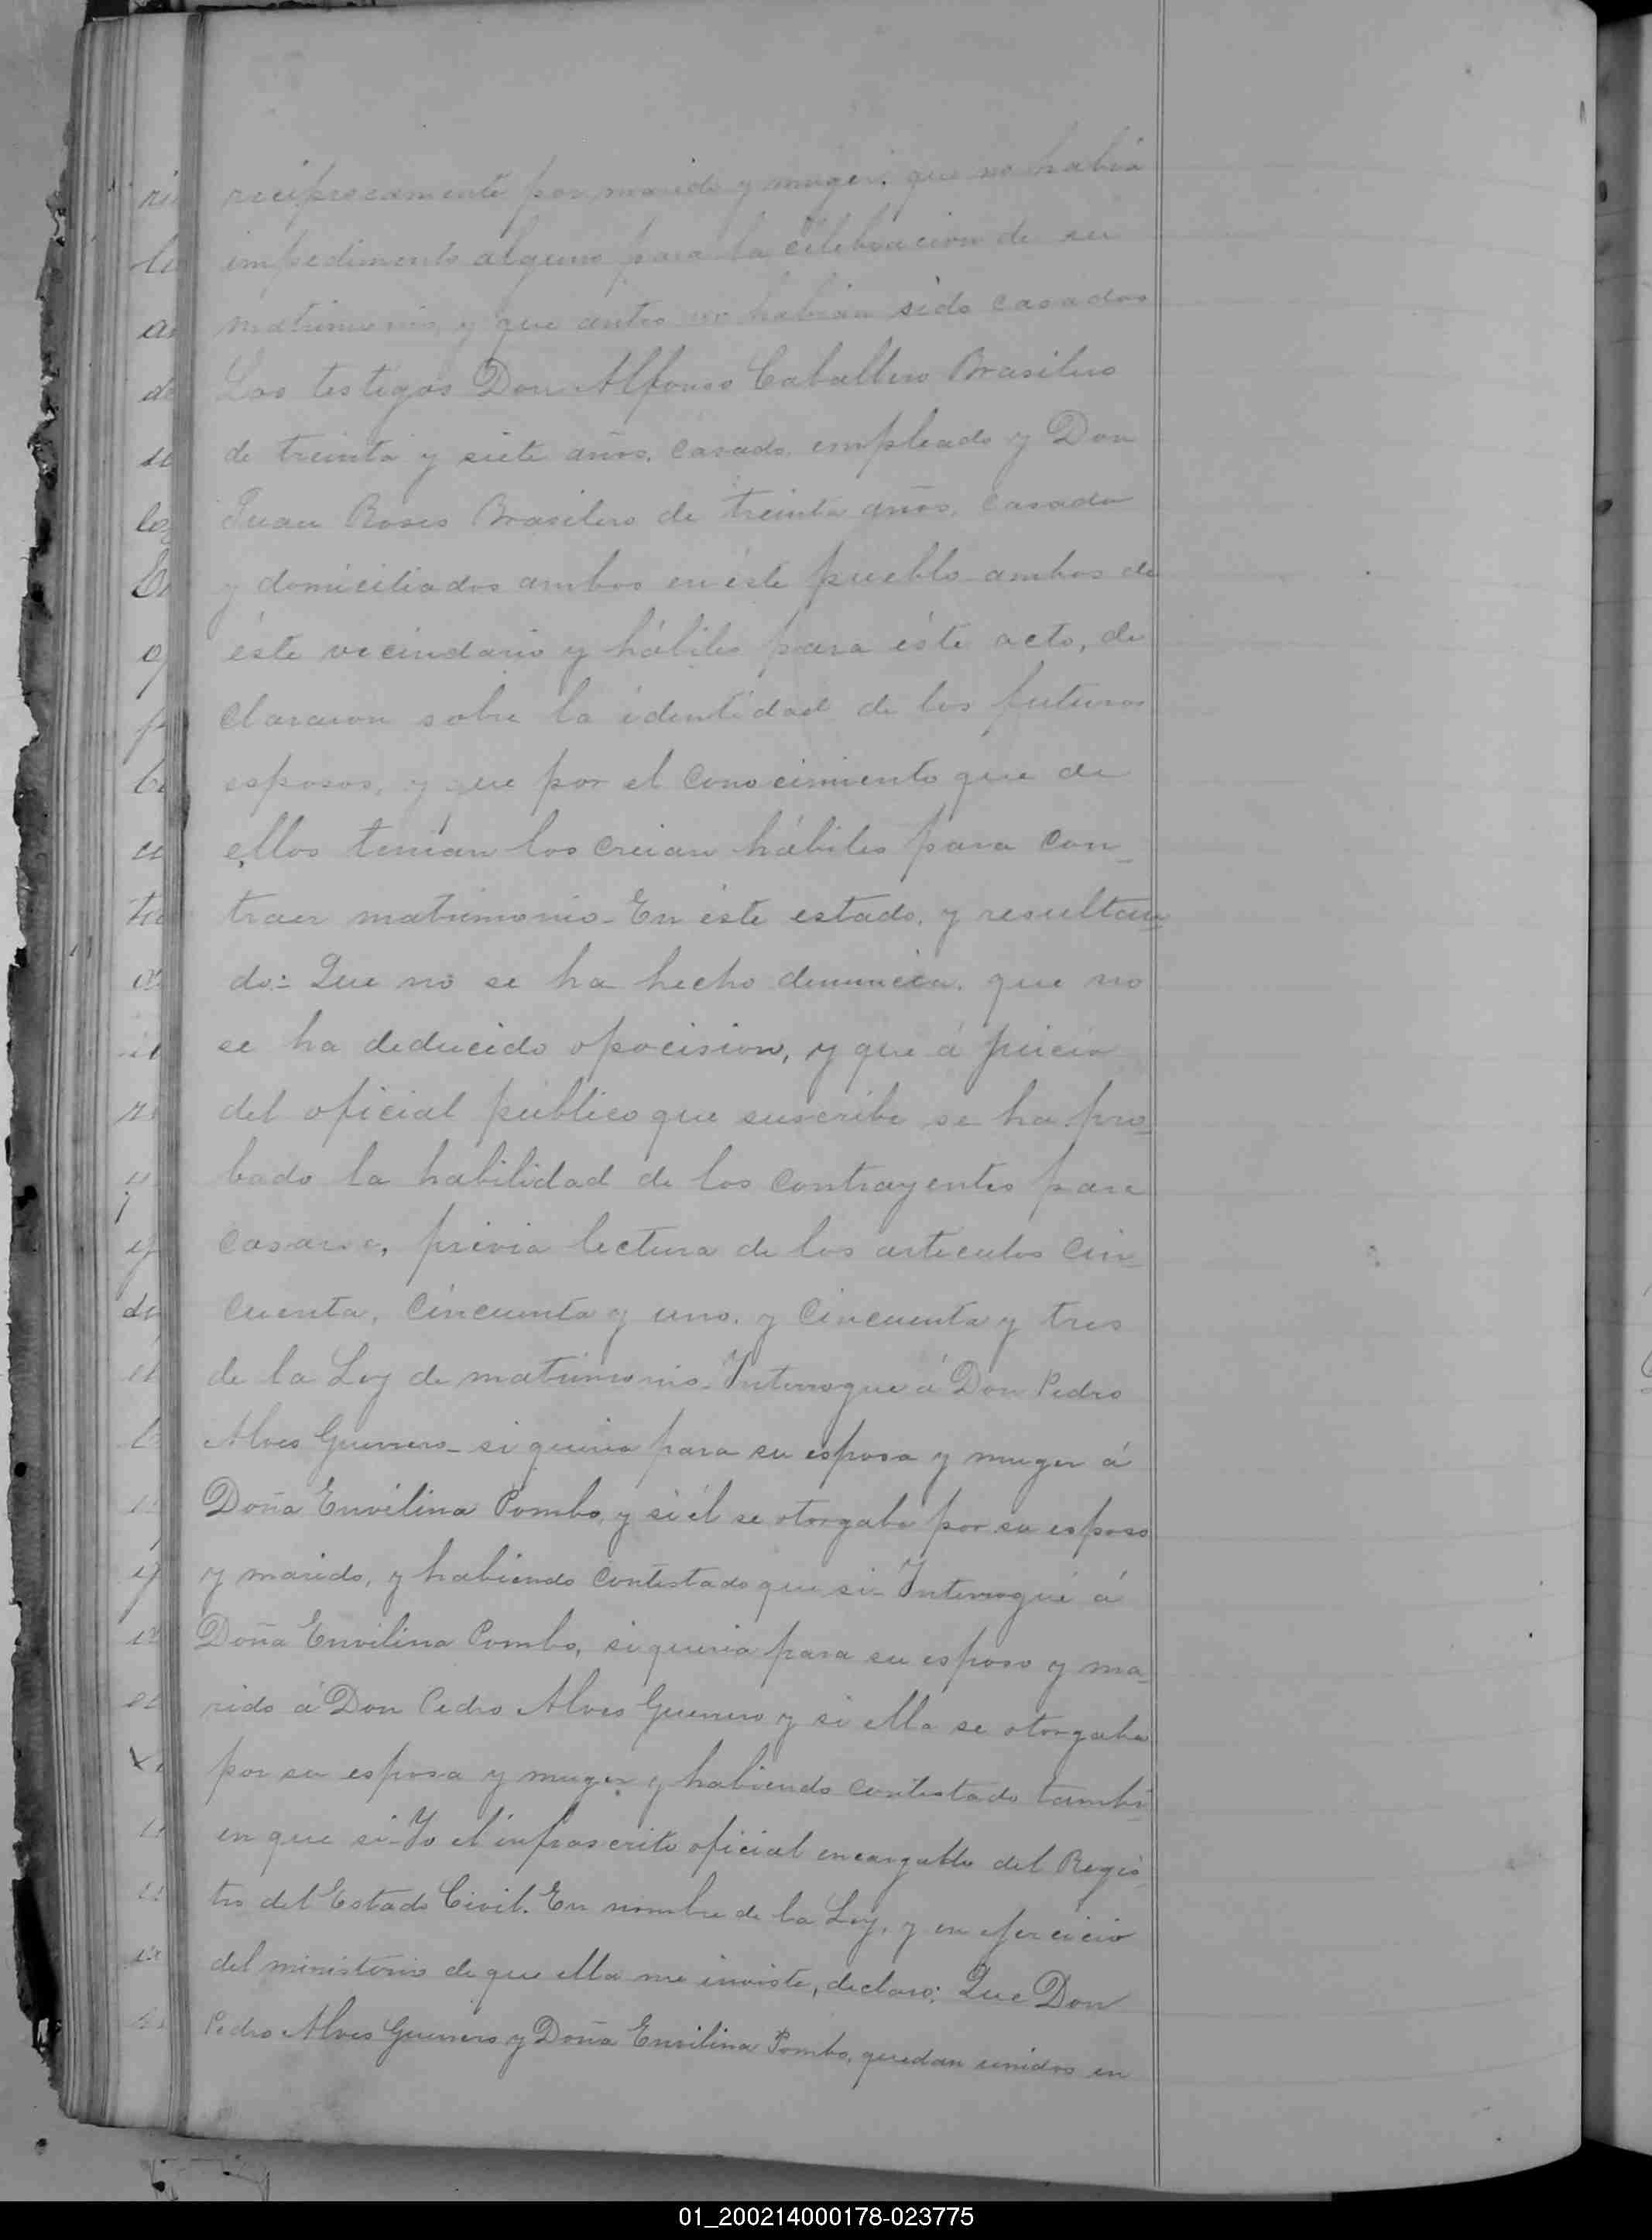 reciprocamente por marido y muger; que no habia
impedimento alguno para la celebracion de su
matrimonio, y que antes no habian sido casados
Los testigos Don Alfonso Caballero Brasilero
de treinta y siete años, casado, empleado y Don
Juan Roses Brasilero de treinta años, casado
y domiciliados ambos en éste pueblo ambos de
éste vecindario y hábiles para éste acto, de
clararon sobre la identidad de los futuros
esposos, y que por el conocimiento que de
ellos tenian los creian hábiles para con_
traer matrimonio_ En éste estado, y resultan_
do:- Que no se ha hecho denuncia, que no
se ha deducido opocision, y que á juicio
del oficial público que suscribe se ha pro_
bado la habilidad de los contrayentes para
casarse, previa lectura de los articulos cin_
cuenta, cincuenta y uno, y cincuenta y tres
de la Ley de matrimonio_ Interrogue á Don Pedro
Alves Guerrero_ si queria para su esposa y muger á
Doña Envilina Pombo, y si él se otorgaba por su esposo
y marido, y habiendo contestado que si_ Interrogué á
Doña Envilina Pombo, si queria para su esposo y ma_
rido á Don Pedro Alves Guerrero y si ella se otorgaba
por su esposa y muger y habiendo contestado tambi
en que si_ Yo el infrascrito oficial encargado del Regis
tro del Estado Civil. En nombre de la Ley, y en ejercicio
del ministerio de que ella me inviste, declaro: Que Don
Pedro Alves Guerrero y Doña Envilina Pombo, quedan unidos en
01_200214000178-023775